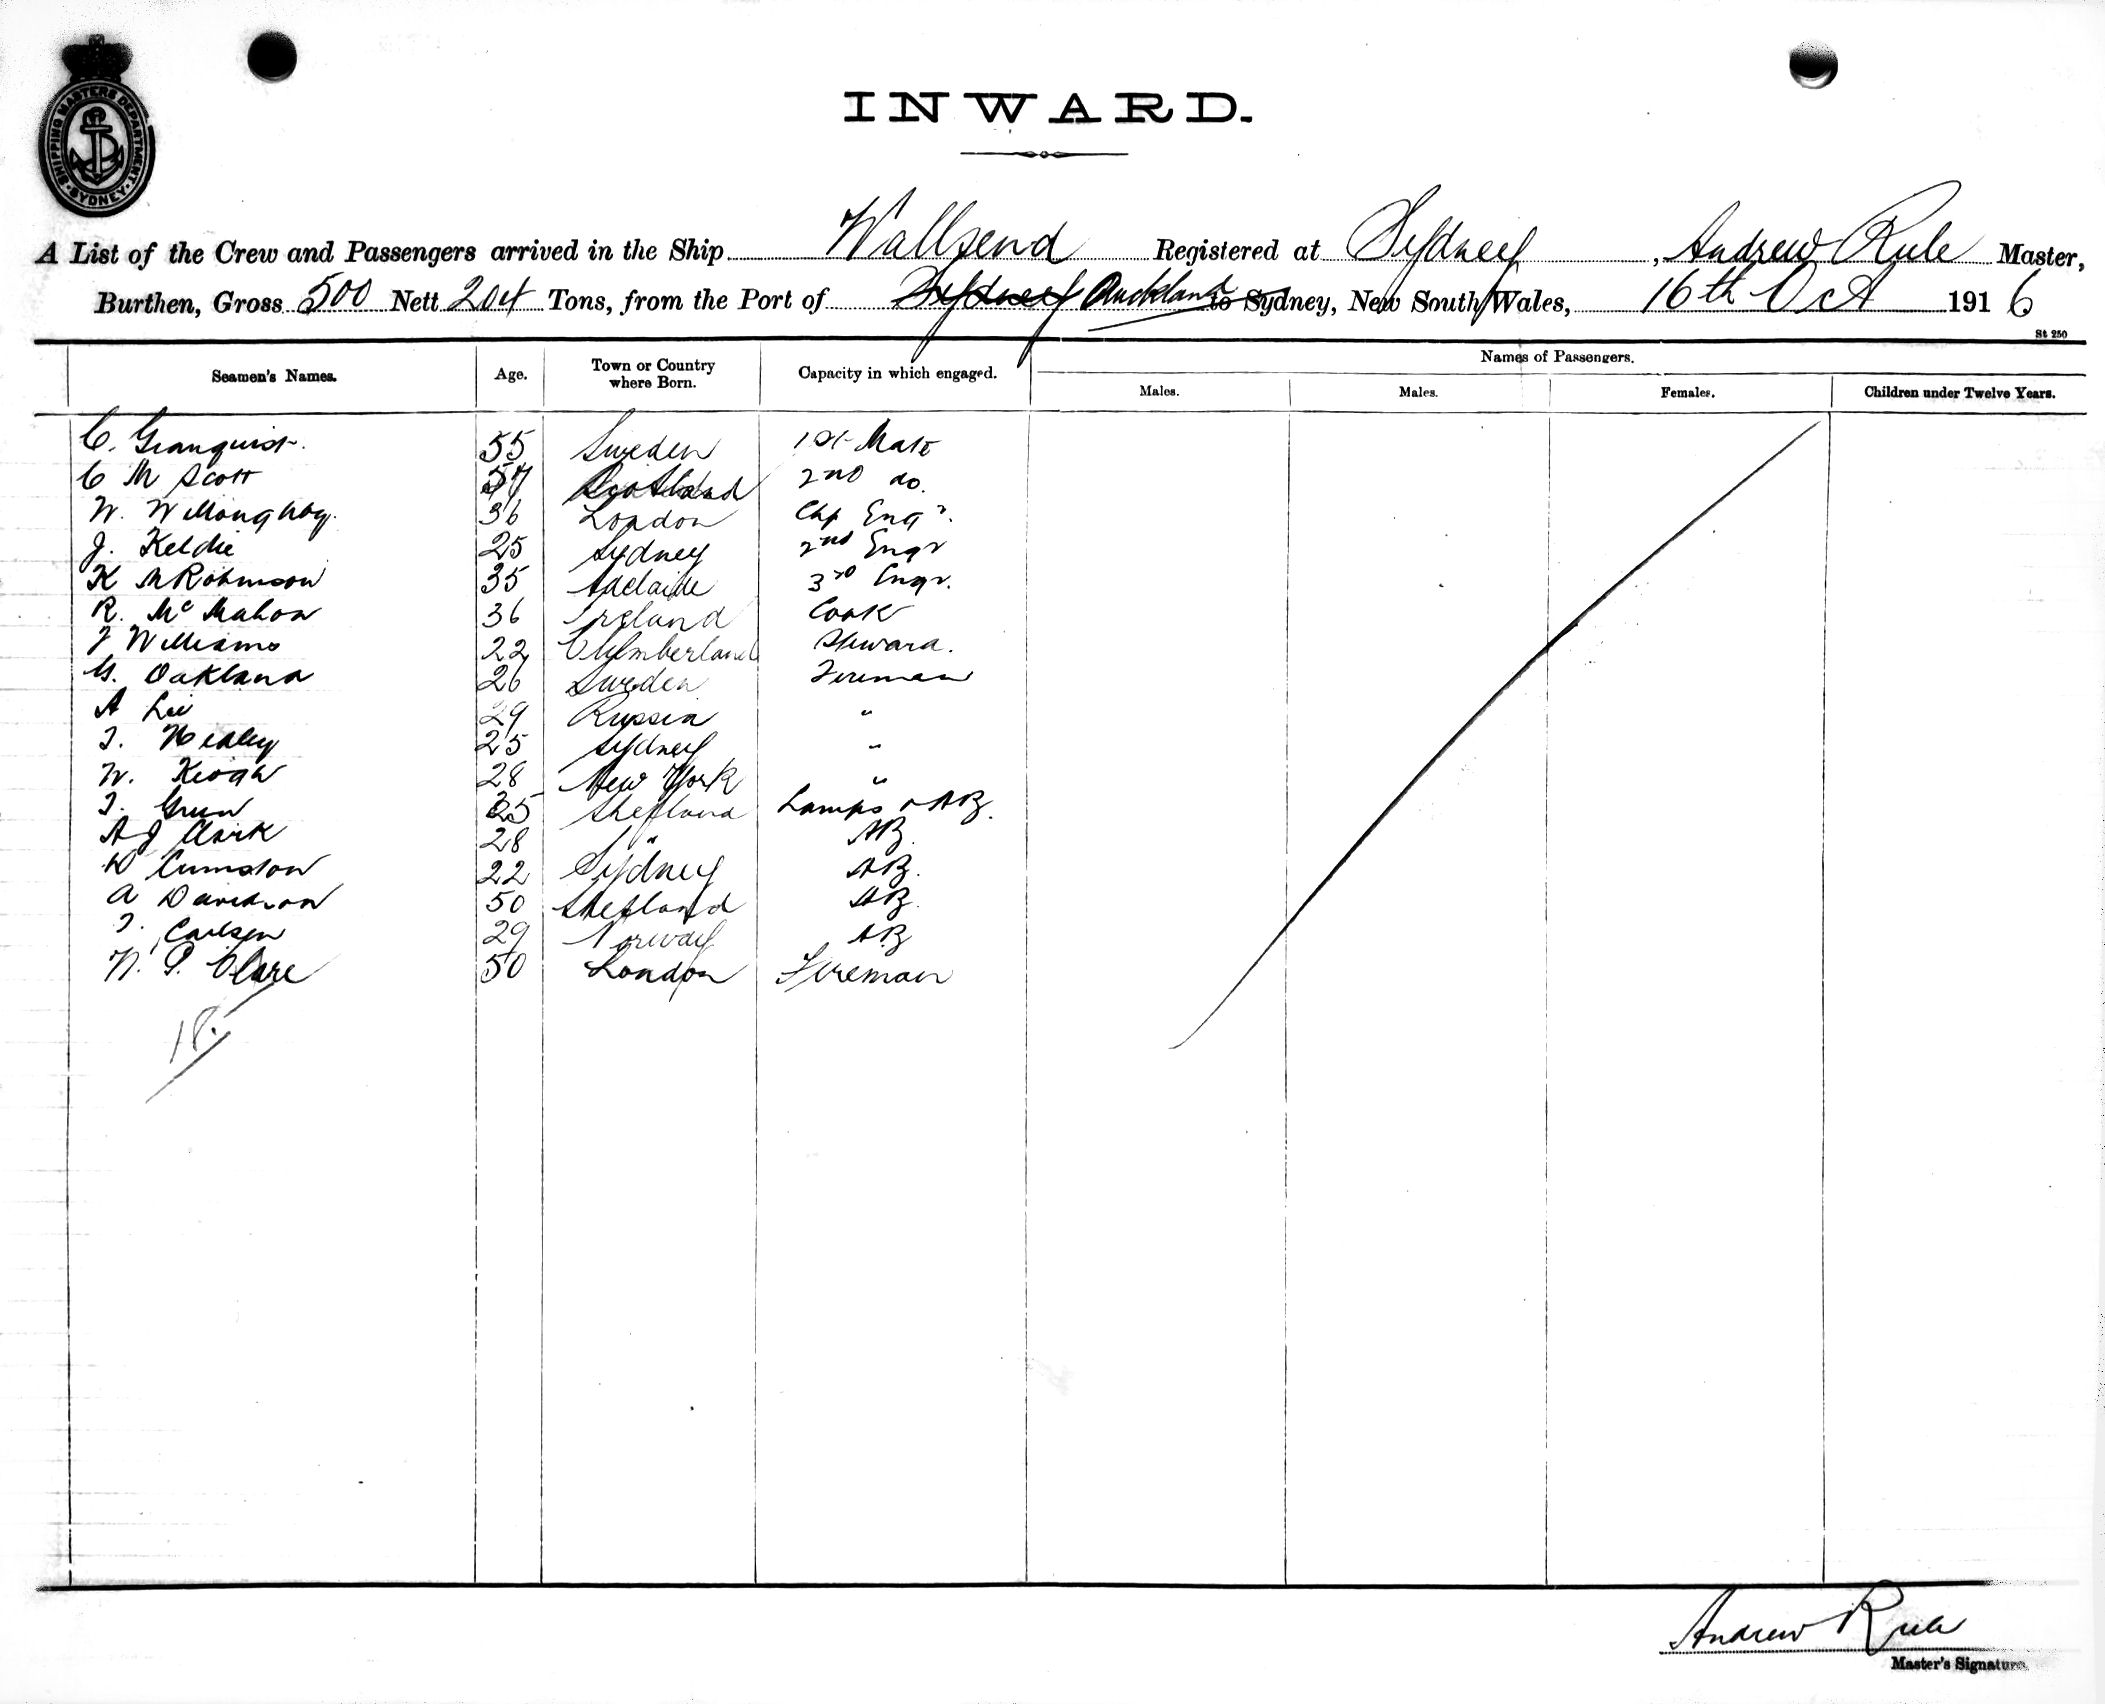 SHIPPING MASTERS DEPARTMENT. SYDNEY.
INWARD.
A List of the Crew and Passengers arrived in the Ship Wallsend Registered at Sydney, Andrew Rule Master,
Burthen, Gross 500 Nett 204 Tons, from the Port of Sydney Auckland to Sydney, New South Wales, 16th Oct 1916
St 250
Seamen's Names. Age. Town or Country where Born. Capacity in which engaged. Names of Passengers.
Males. Males. Females. Children under Twelve Years.
C. Granquist. 55 Sweden 1st Mate
C M Scott Scotland 2nd do.
W. Willoughby. 36 London Chf Engr.
J. Keldie 25 Sydney 2nd Engr
K M Robinson 35 Adelaide 3rd Engr.
R. Mc Mahon 36 Ireland Cook
J Williams 22 Cumberland Steward.
G. Oakland 26 Sweden Fireman
A Lee 29 Russia "
T. Healey 25 Sydney "
W. Keogh 28 New York "
T. Green 25 Shetland Lamps & AB.
A J Clark 28 " AB.
W 22 Sydney AB.
A Davidson 50 Shetland AB.
T. Carlsen 29 Norway AB
W. G. Clare 50 London Fireman
18.
Andrew Rule
Master's Signature.